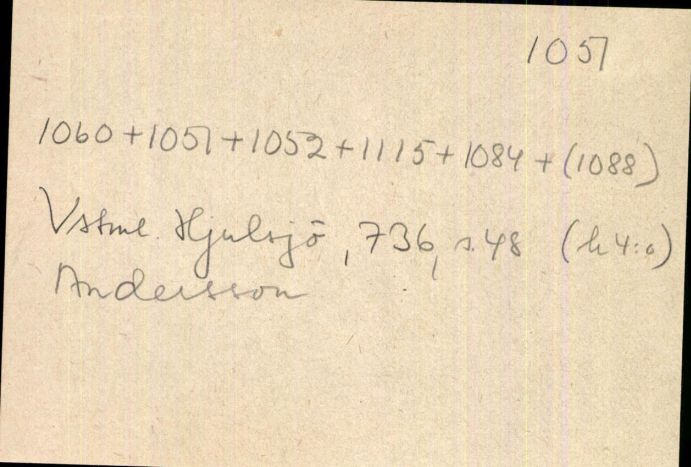 1051
1060 + 1051 + 1052 + 1115 + 1084 + (1088)
Vstml. Hjulsjö, 736, s. 48 (h 4:o)
Andersson